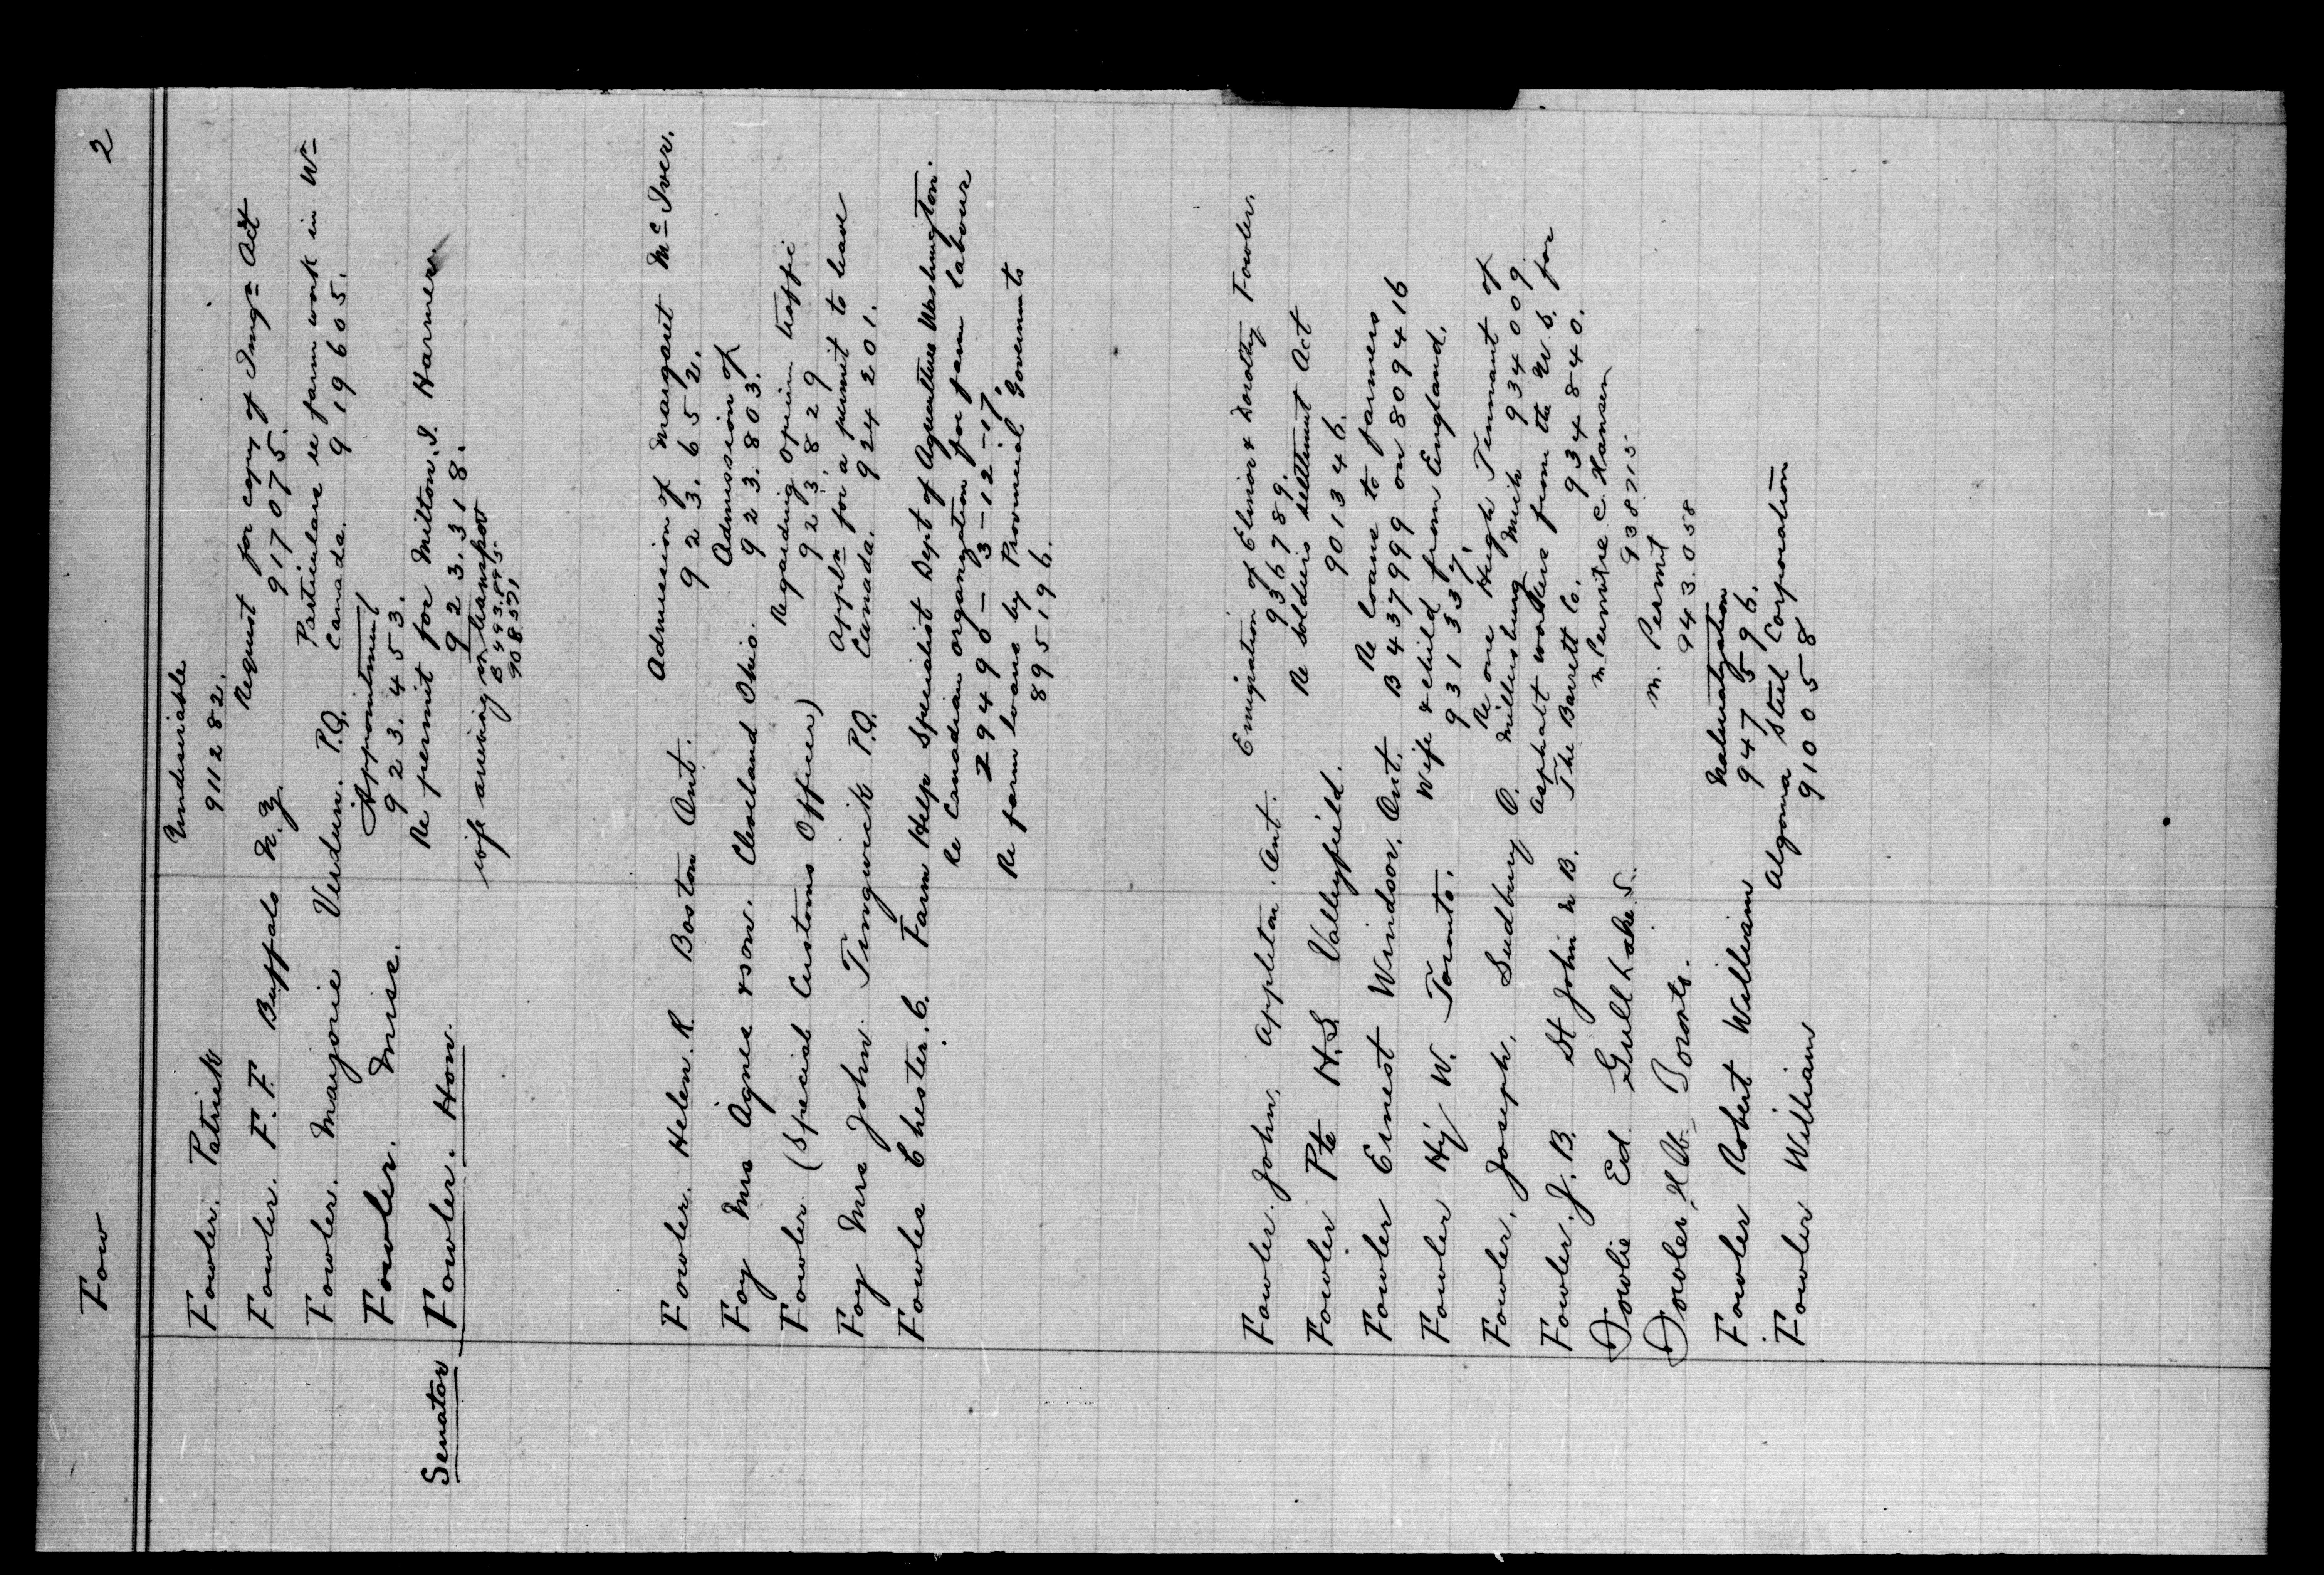 Fow 2
Fowler. Patrick Undesirable
911282.
Fowler. F. F. Buffalo N.Y. Request for copy of Immgn Act
917075.
Fowler. Marjorie Verdun. P.Q. Particulars re farm work in Wn
Canada. 919605.
Fowler. Miss. Appointment
923.453.
Senator Fowler. Hon. Re permit for Milton. I. Harner.
923.318.
wife arriving on transport
B493.895
908571
Fowler. Helen. R. Boston Ont. Admission of Margaret McIver.
923.652.
Foy Mrs Agnes & son. Cleveland Ohio. Admission of
923.803.
Fowler (Special Customs Officer) Regarding opium traffic
923.829
Foy Mrs John. Tingwick P.Q. Appln for a permit to leave
Canada. 924201.
Fowles Chester. C. Farm Help Specialist Dept of Agriculture Washington.
Re Canadian organization for farm labour
29490-3-12-17.
Re farm loans by Provincial Governments
895196.
Fowler. John, Appleton. Ont. Emigration of Elinor & Dorothy Fowler.
936789.
Fowler Pte H.S. Valleyfield. Re Soldiers Settlement Act
901346.
Fowler Ernest Windsor. Ont. Re loans to farmers
B437999 on 8099416
Fowler Hy W. Toronto. Wife & child from England.
931337.
Fowler, Joseph, Sudbury O. Re one Hugh Tennant of
Millersburg Mich 934009.
Fowler. J. B. St John N B. Asphalt workers from the U.S. for
The Barrett Co. 934840.
Fowlie Ed Gull Lake S. M. Permit re C. Hansen
938715
Fowler H W Toronto. M. Permit
943.058
Fowler Robert William Naturalization
947596.
Fowler William Algoma Steel Corporation
910058